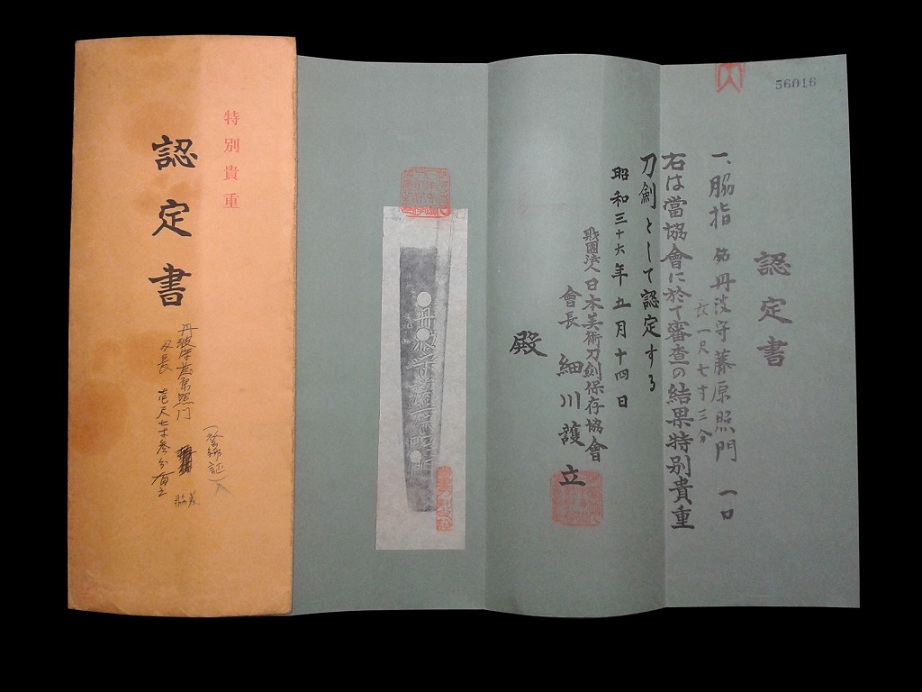 特別貴重
認定書
丹波守藤原照門
刃長 壱尺七寸参分有之
(登録証)入
56016
認定書
一、脇指 銘 丹波守藤原照門 一口
長一尺七寸三分
右は當協會に於て審査の結果特別貴重
刀劍として認定する
昭和三十六年五月十四日
財團法人日本美術刀劍保存協會
會長 細川護立
殿
丹波守藤原照門